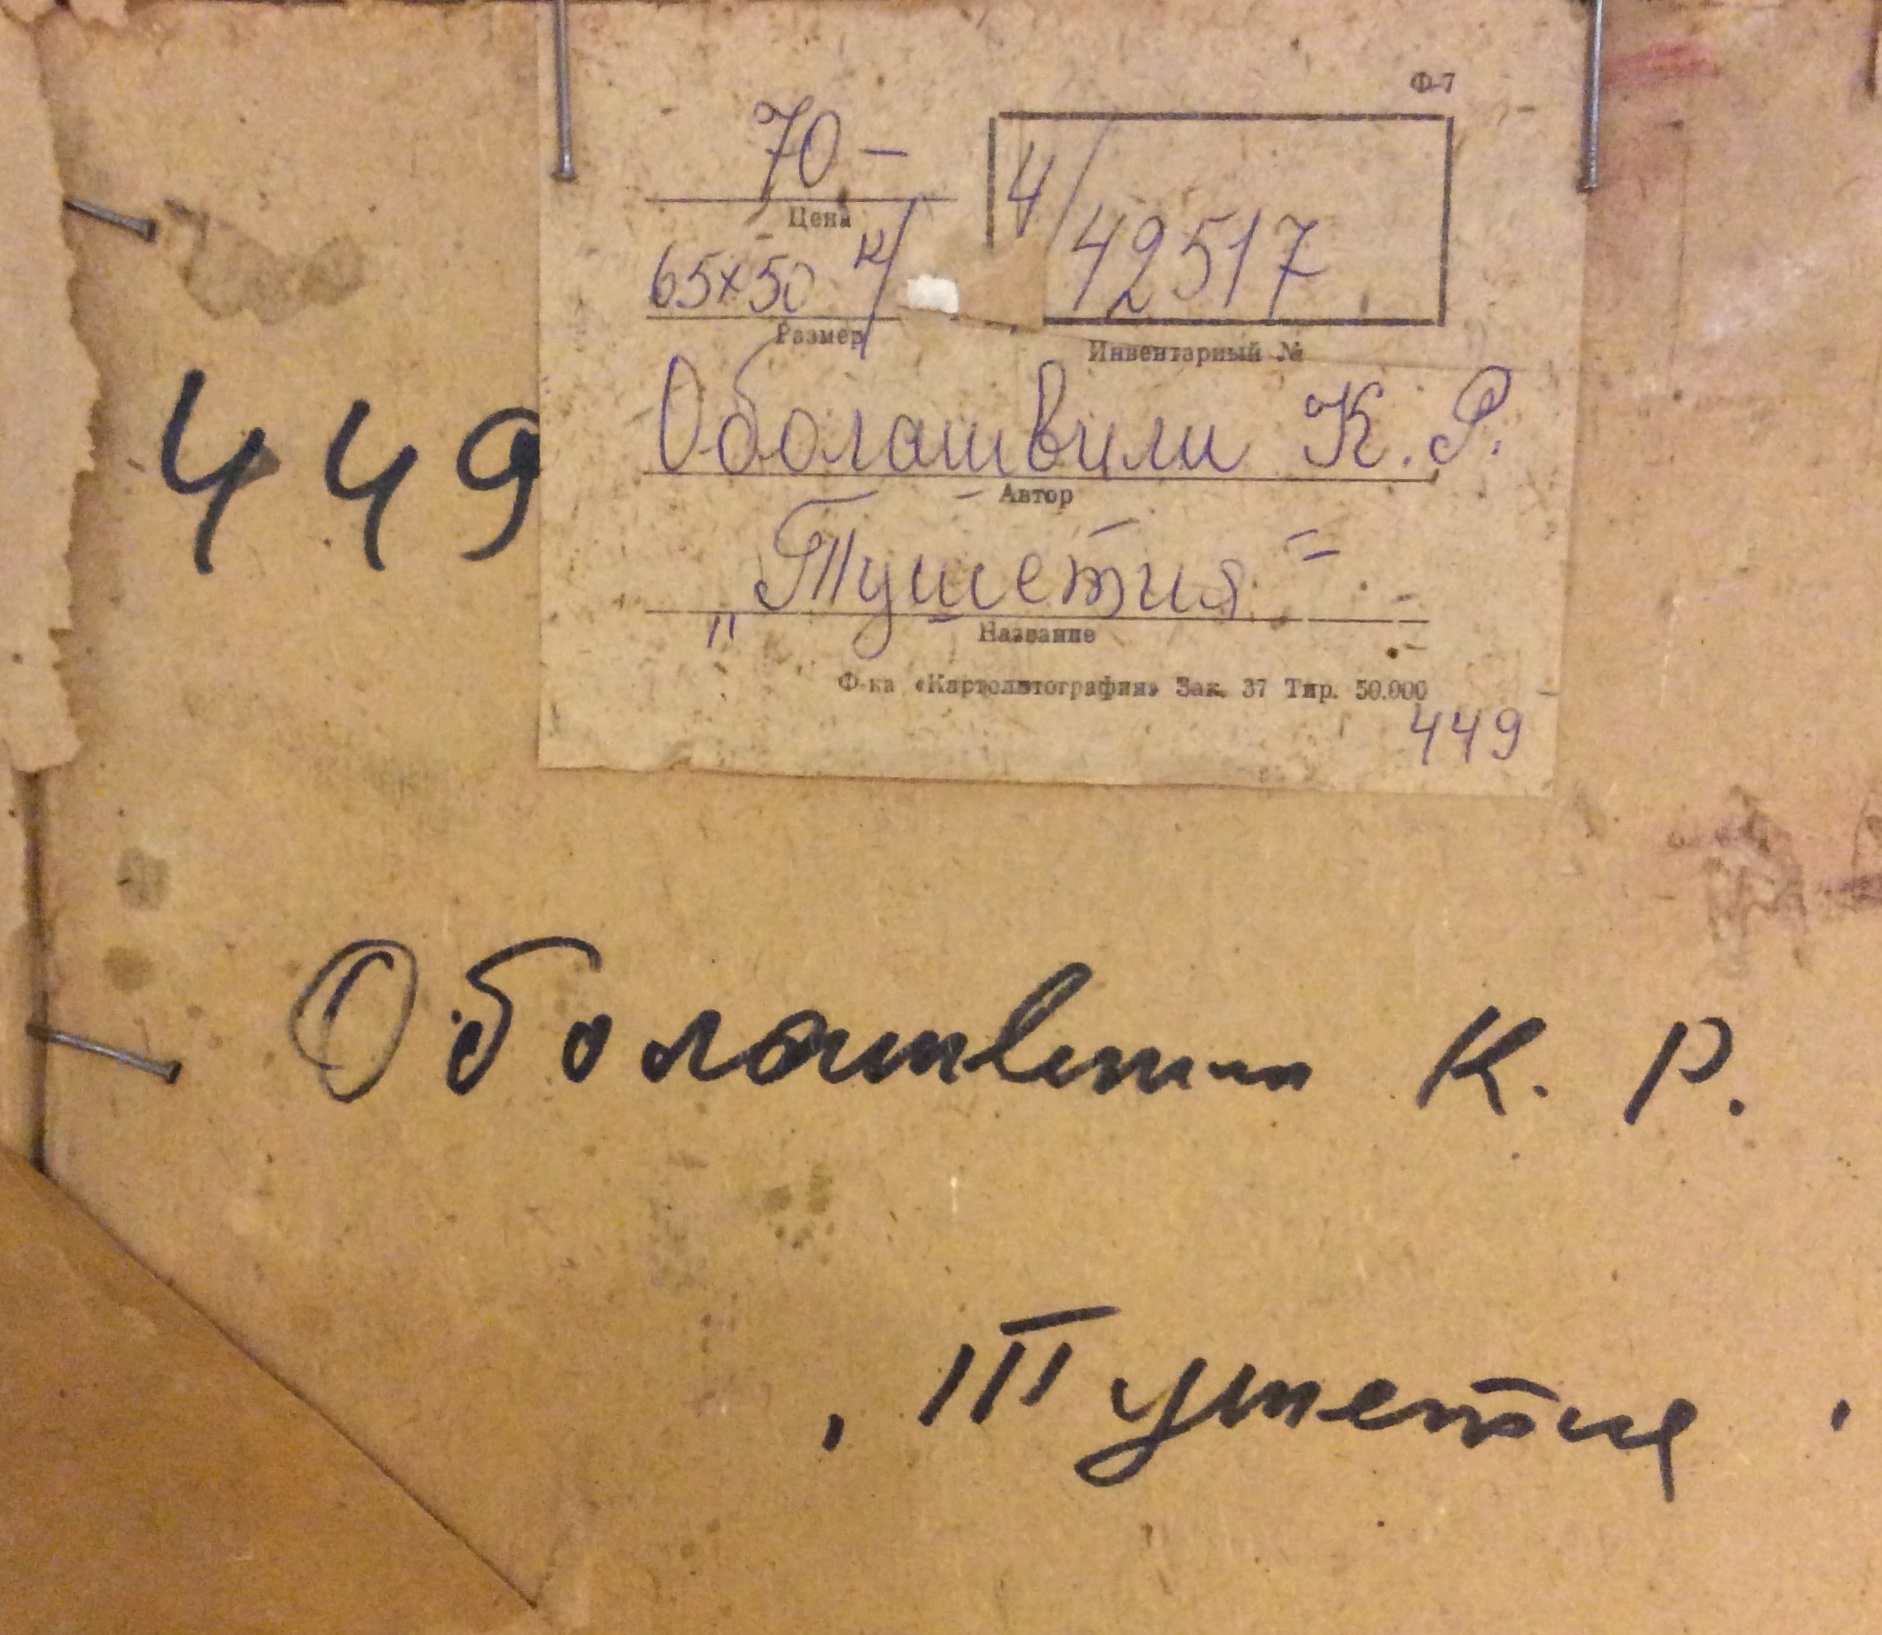 Ф-7
70 –
Цена
4/42517
65х50 к/
Размер
Инвентарный №
Оболашвили К. Р.
Автор
„Тушетия"
Название
Ф-ка «Картолитография» Зак. 37 Тир. 50.000
449
449
Оболашвили К. Р.
, Тушетия '